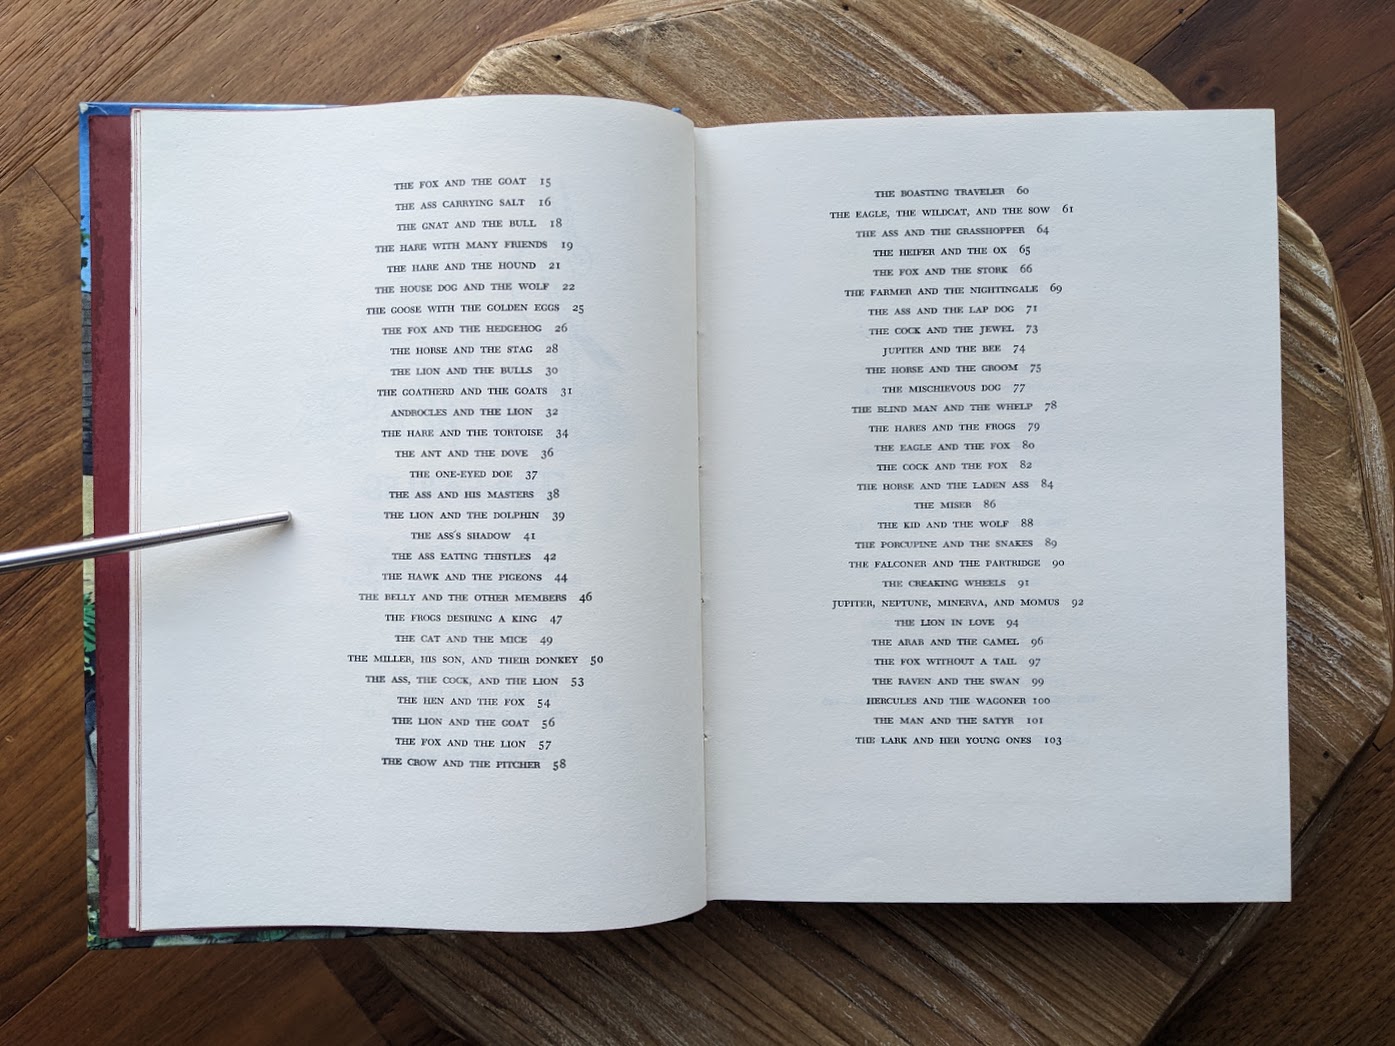 THE FOX AND THE GOAT 15
THE ASS CARRYING SALT 16
THE GNAT AND THE BULL 18
THE HARE WITH MANY FRIENDS 19
THE HARE AND THE HOUND 21
THE HOUSE DOG AND THE WOLF 22
THE GOOSE WITH THE GOLDEN EGGS 25
THE FOX AND THE HEDGEHOG 26
THE HORSE AND THE STAG 28
THE LION AND THE BULLS 30
THE GOATHERD AND THE GOATS 31
ANDROCLES AND THE LION 32
THE HARE AND THE TORTOISE 34
THE ANT AND THE DOVE 36
THE ONE-EYED DOE 37
THE ASS AND HIS MASTERS 38
THE LION AND THE DOLPHIN 39
THE ASS'S SHADOW 41
THE ASS EATING THISTLES 42
THE HAWK AND THE PIGEONS 44
THE BELLY AND THE OTHER MEMBERS 46
THE FROGS DESIRING A KING 47
THE CAT AND THE MICE 49
THE MILLER, HIS SON, AND THEIR DONKEY 50
THE ASS, THE COCK, AND THE LION 53
THE HEN AND THE FOX 54
THE LION AND THE GOAT 56
THE FOX AND THE LION 57
THE CROW AND THE PITCHER 58
THE BOASTING TRAVELER 60
THE EAGLE, THE WILDCAT, AND THE SOW 61
THE ASS AND THE GRASSHOPPER 64
THE HEIFER AND THE OX 65
THE FOX AND THE STORK 66
THE FARMER AND THE NIGHTINGALE 69
THE ASS AND THE LAP DOG 71
THE COCK AND THE JEWEL 73
JUPITER AND THE BEE 74
THE HORSE AND THE GROOM 75
THE MISCHIEVOUS DOG 77
THE BLIND MAN AND THE WHELP 78
THE HARES AND THE FROGS 79
THE EAGLE AND THE FOX 80
THE COCK AND THE FOX 82
THE HORSE AND THE LADEN ASS 84
THE MISER 86
THE KID AND THE WOLF 88
THE PORCUPINE AND THE SNAKES 89
THE FALCONER AND THE PARTRIDGE 90
THE CREAKING WHEELS 91
JUPITER, NEPTUNE, MINERVA, AND MOMUS 92
THE LION IN LOVE 94
THE ARAB AND THE CAMEL 96
THE FOX WITHOUT A TAIL 97
THE RAVEN AND THE SWAN 99
HERCULES AND THE WAGONER 100
THE MAN AND THE SATYR 101
THE LARK AND HER YOUNG ONES 103